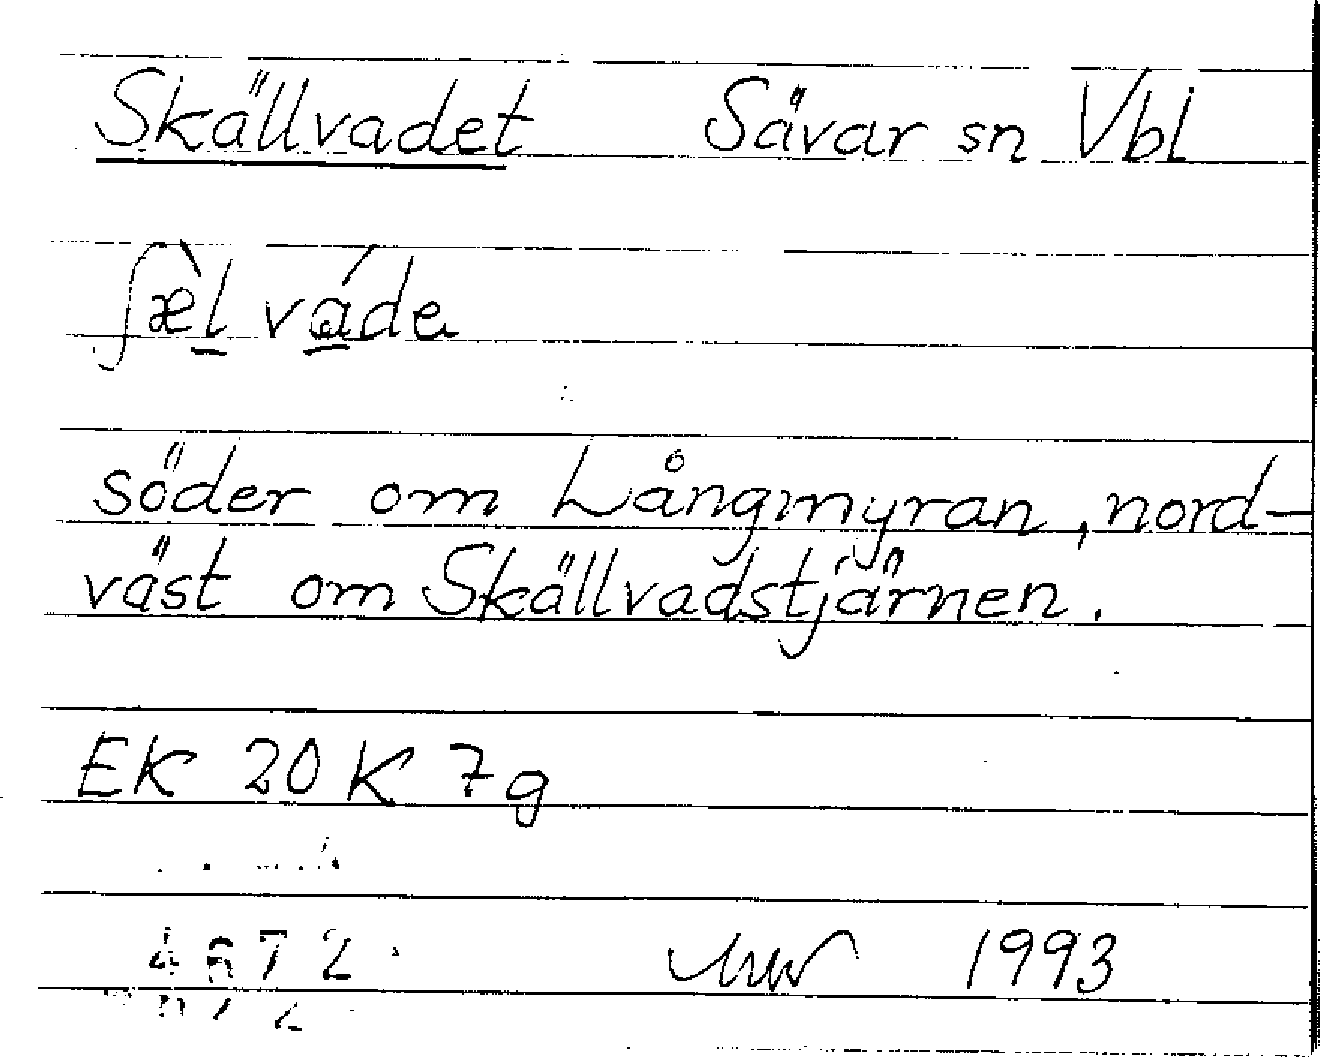 Skällvadet Sävar sn Vbl
ʃæ̀l váde
söder om Långmyran, nord-
väst om Skällvadstjärnen.
EK 20 K 7g
1993